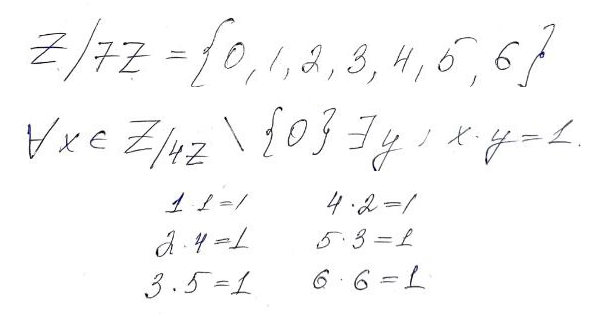 Z/7Z = {0, 1, 2, 3, 4, 5, 6}
∀x ∈ Z/4Z \ {0} ∃y, x·y=1.
1·1=1 4·2=1
2·4=1 5·3=1
3·5=1 6·6=1